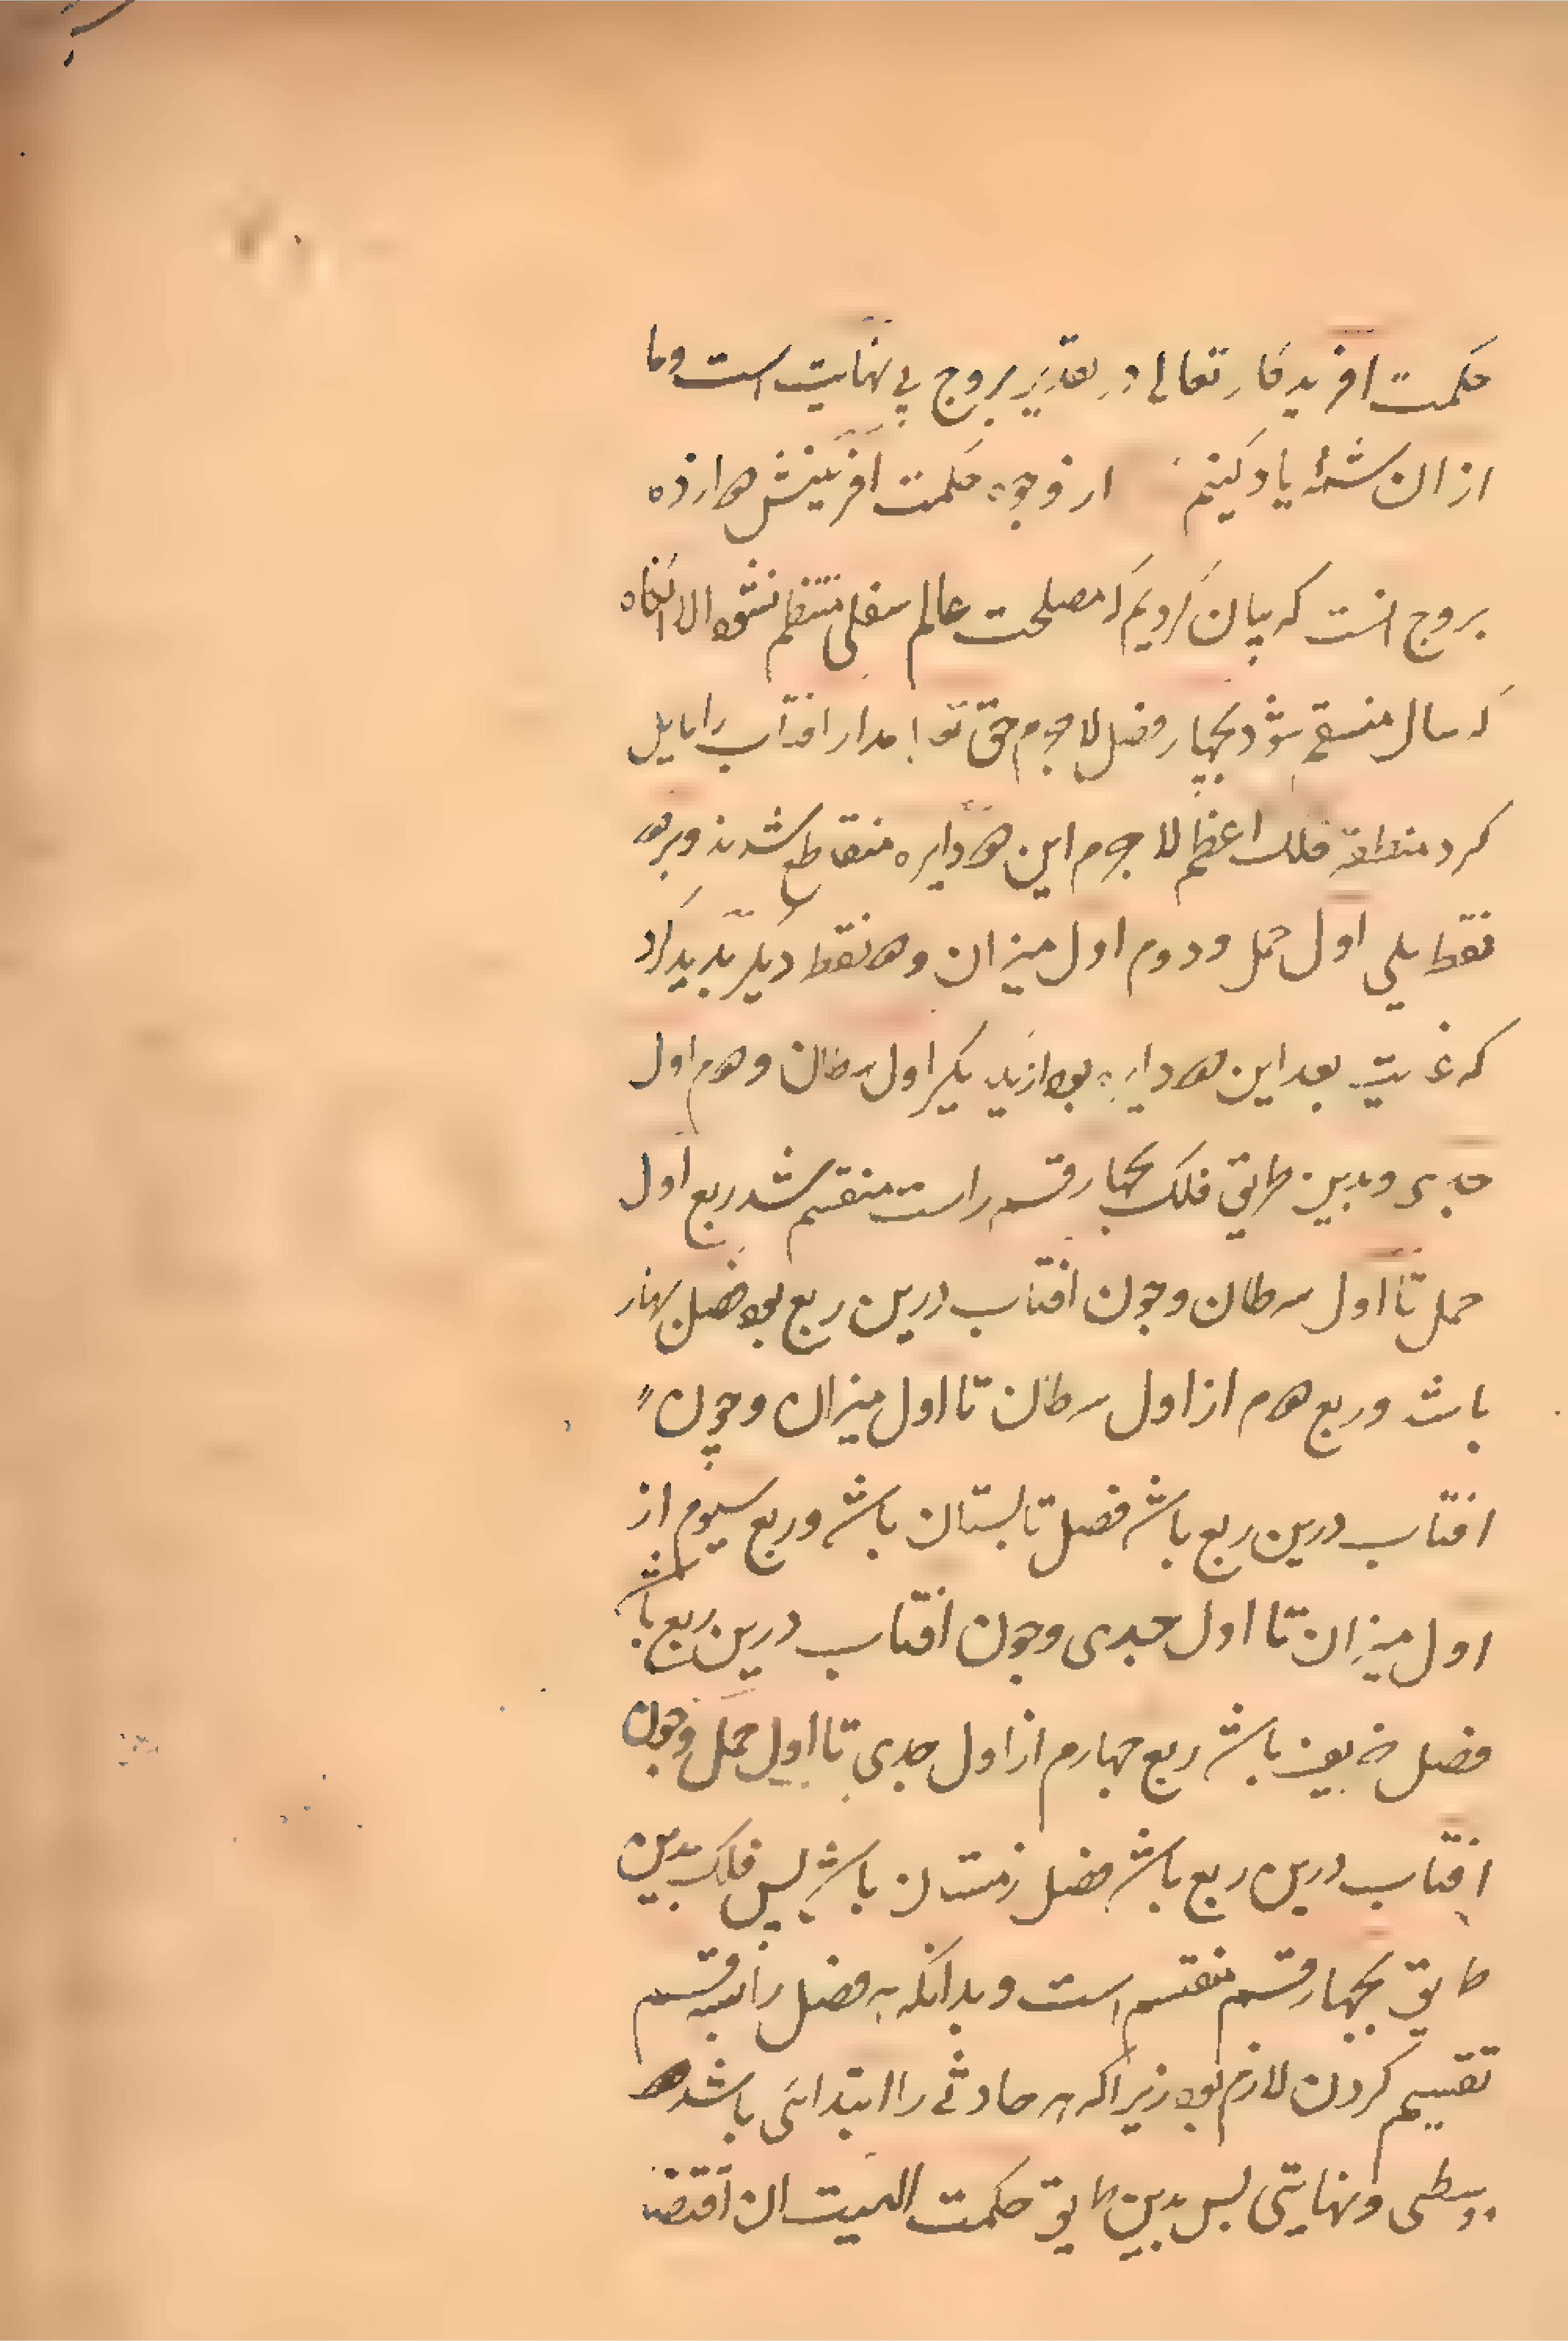 حکمت افریدکار تعالی در تقدیر بروج بی نهایت است وما
از ان شمهٔ یاد کنیم از وجوه حکمت افرینش دوازده
بروج انست که بیان کردیم که مصلحت عالم سفلی منتظم نشود الا انکاه
که سال منقسم شود بچهار فصل لا جرم حق تعا مدار افتاب را مایل
کرد منطقه فلک اعظم لا جرم این دو دایره متقاطع شدند وبر دو
نقطه یکی اول حمل ودوم اول میزان و دو نقطه دیکر بدید کرد
که غایت بعد این دو دایره بود از یکدیکر اول سرطان و دوم اول
جدی وبدین طریق فلک بچهار قسم راست منقسم شد ربع اول
حمل تا اول سرطان وچون افتاب درین ربع بود فصل بهار
باشد وربع دوم از اول سرطان تا اول میزان وچون
افتاب درین ربع باشد فصل تابستان باشد وربع سیوم از
اول میزان تا اول جدی وچون افتاب درین ربع باشد
فصل خریف باشد ربع چهارم از اول جدی تا اول حمل وچون
افتاب درین ربع باشد فصل زمستان باشد پس فلک بدین
طریق بچهار قسم منقسم است وبدانکه هر فصل را بسه قسم
تقسیم کردن لازم بود زیرا که هر حادثی را ابتدائی باشد و
وسطی ونهایتی پس بدین طریق حکمت الهیت ان اقتضا